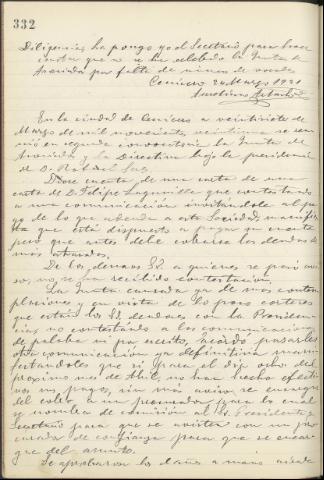 332
Diligencia, la pongo yo el Secretario para hacer
constar que no se ha celebrado la Junta de
Avenida por falta de número de vocales
Cenicero 24 Marzo 1921
En la ciudad de Cenicero a veintisiete de
Marzo de mil novecientos veintiuno se reu-
nió en segunda convocatoria la Junta de
Avenida y la Directiva bajo la presidencia
de D. Rafael
Diose cuenta de una carta de
carta de D. Felipe Lagunilla que contestando
a una comunicación invitandole al pa-
go de lo que adeuda a esta Sociedad, manifies-
ta que está dispuesto a pagar su cuenta
pero que antes debe cobrarse las deudas
mas atrasadas.
De los demas Sres. a quienes se pasó avi-
so, no se han recibido contestación.
La Junta cansada ya de tantas contem-
placiones y en vista de lo poco corteses
que estan los Sres. deudores con la Presiden-
cia, no contestando a las comunicaciones
de palabra ni por escrito, acordó pasarles
otra comunicación ya definitiva mani-
festandoles que si para el dia ocho del
proximo mes de Abril, no han hecho efecti-
vo su pago, sin mas aviso se encargue
del cobro, a un procurador para lo cual
se nombra de comisión al Sr. Presidente y
Secretario para que se avisten con un pro-
curador de confianza para que se encar-
gue del asunto.
Se aprobaron los daños a mano airada